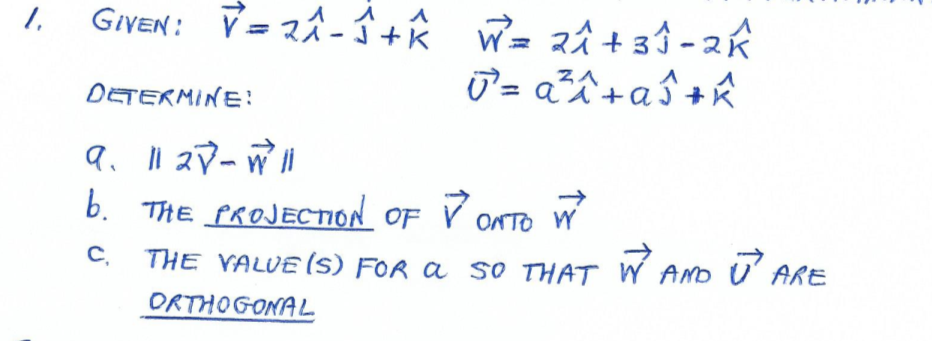 1. GIVEN: V⃗ = 2î - ĵ + k̂ W⃗ = 2î + 3ĵ - 2k̂
U⃗ = a²î + aĵ + k̂
DETERMINE:
a. || 2V⃗ - W⃗ ||
b. THE PROJECTION OF V⃗ ONTO W⃗
c. THE VALUE(S) FOR a SO THAT W⃗ AND U⃗ ARE
ORTHOGONAL